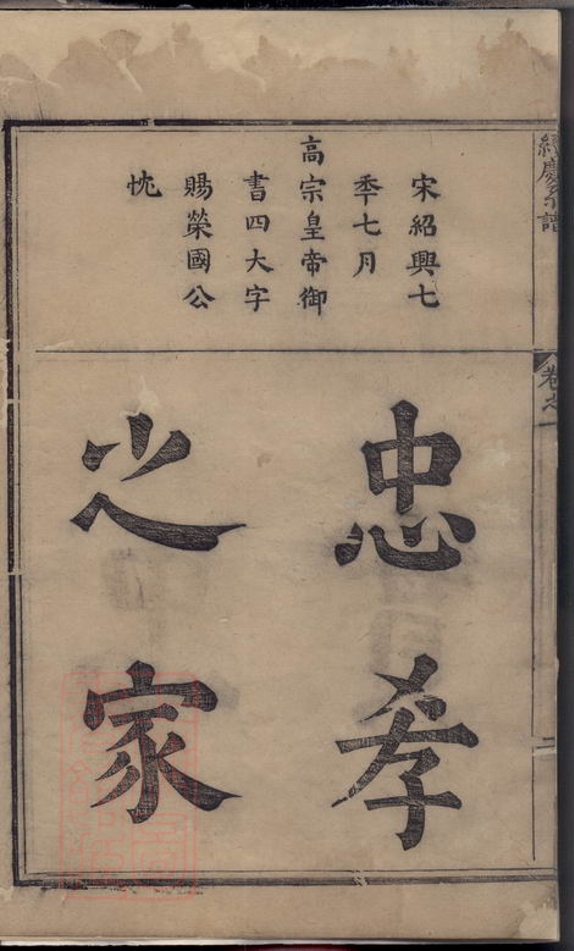 經慶系譜
卷之一
二
宋紹興七
秊七月
高宗皇帝御
書四大字
賜榮國公
忱
忠孝
之家